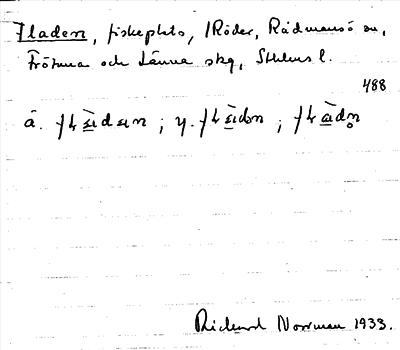 Fladen, fiskeplats, Röder, Rådmansö sn,
Frötuna och Länna skg, Sthlms l.
488
ä. ; y. ;
Rickard Norrman 1933.